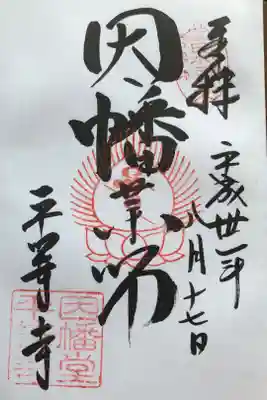 奉拝
平成廿一年八月十七日
因幡薬師
平等寺
因幡堂